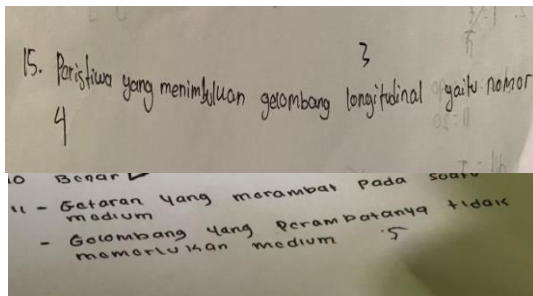 3
15. Paristiwa yang menimbulkan gelombang longitudinal yaitu nomor
4
10 Benar
11 - Getaran yang merambat pada suatu
medium
- Gelombang yang perambatanya tidak
memerlukan medium
5